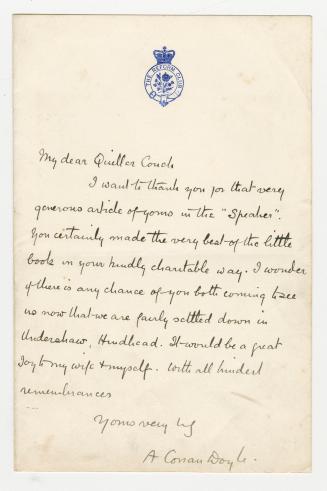 THE REFORM CLUB
My dear Quiller Couch
I want to thank you for that very
generous article of yours in the "Speaker".
You certainly made the very best of the little
book in your kindly charitable way. I wonder
if there is any chance of you both coming to see
us now that we are fairly settled down in
Undershaw, Hindhead. It would be a great
joy to my wife & myself. With all kindest
remembrances
Yours very
A Conan Doyle.